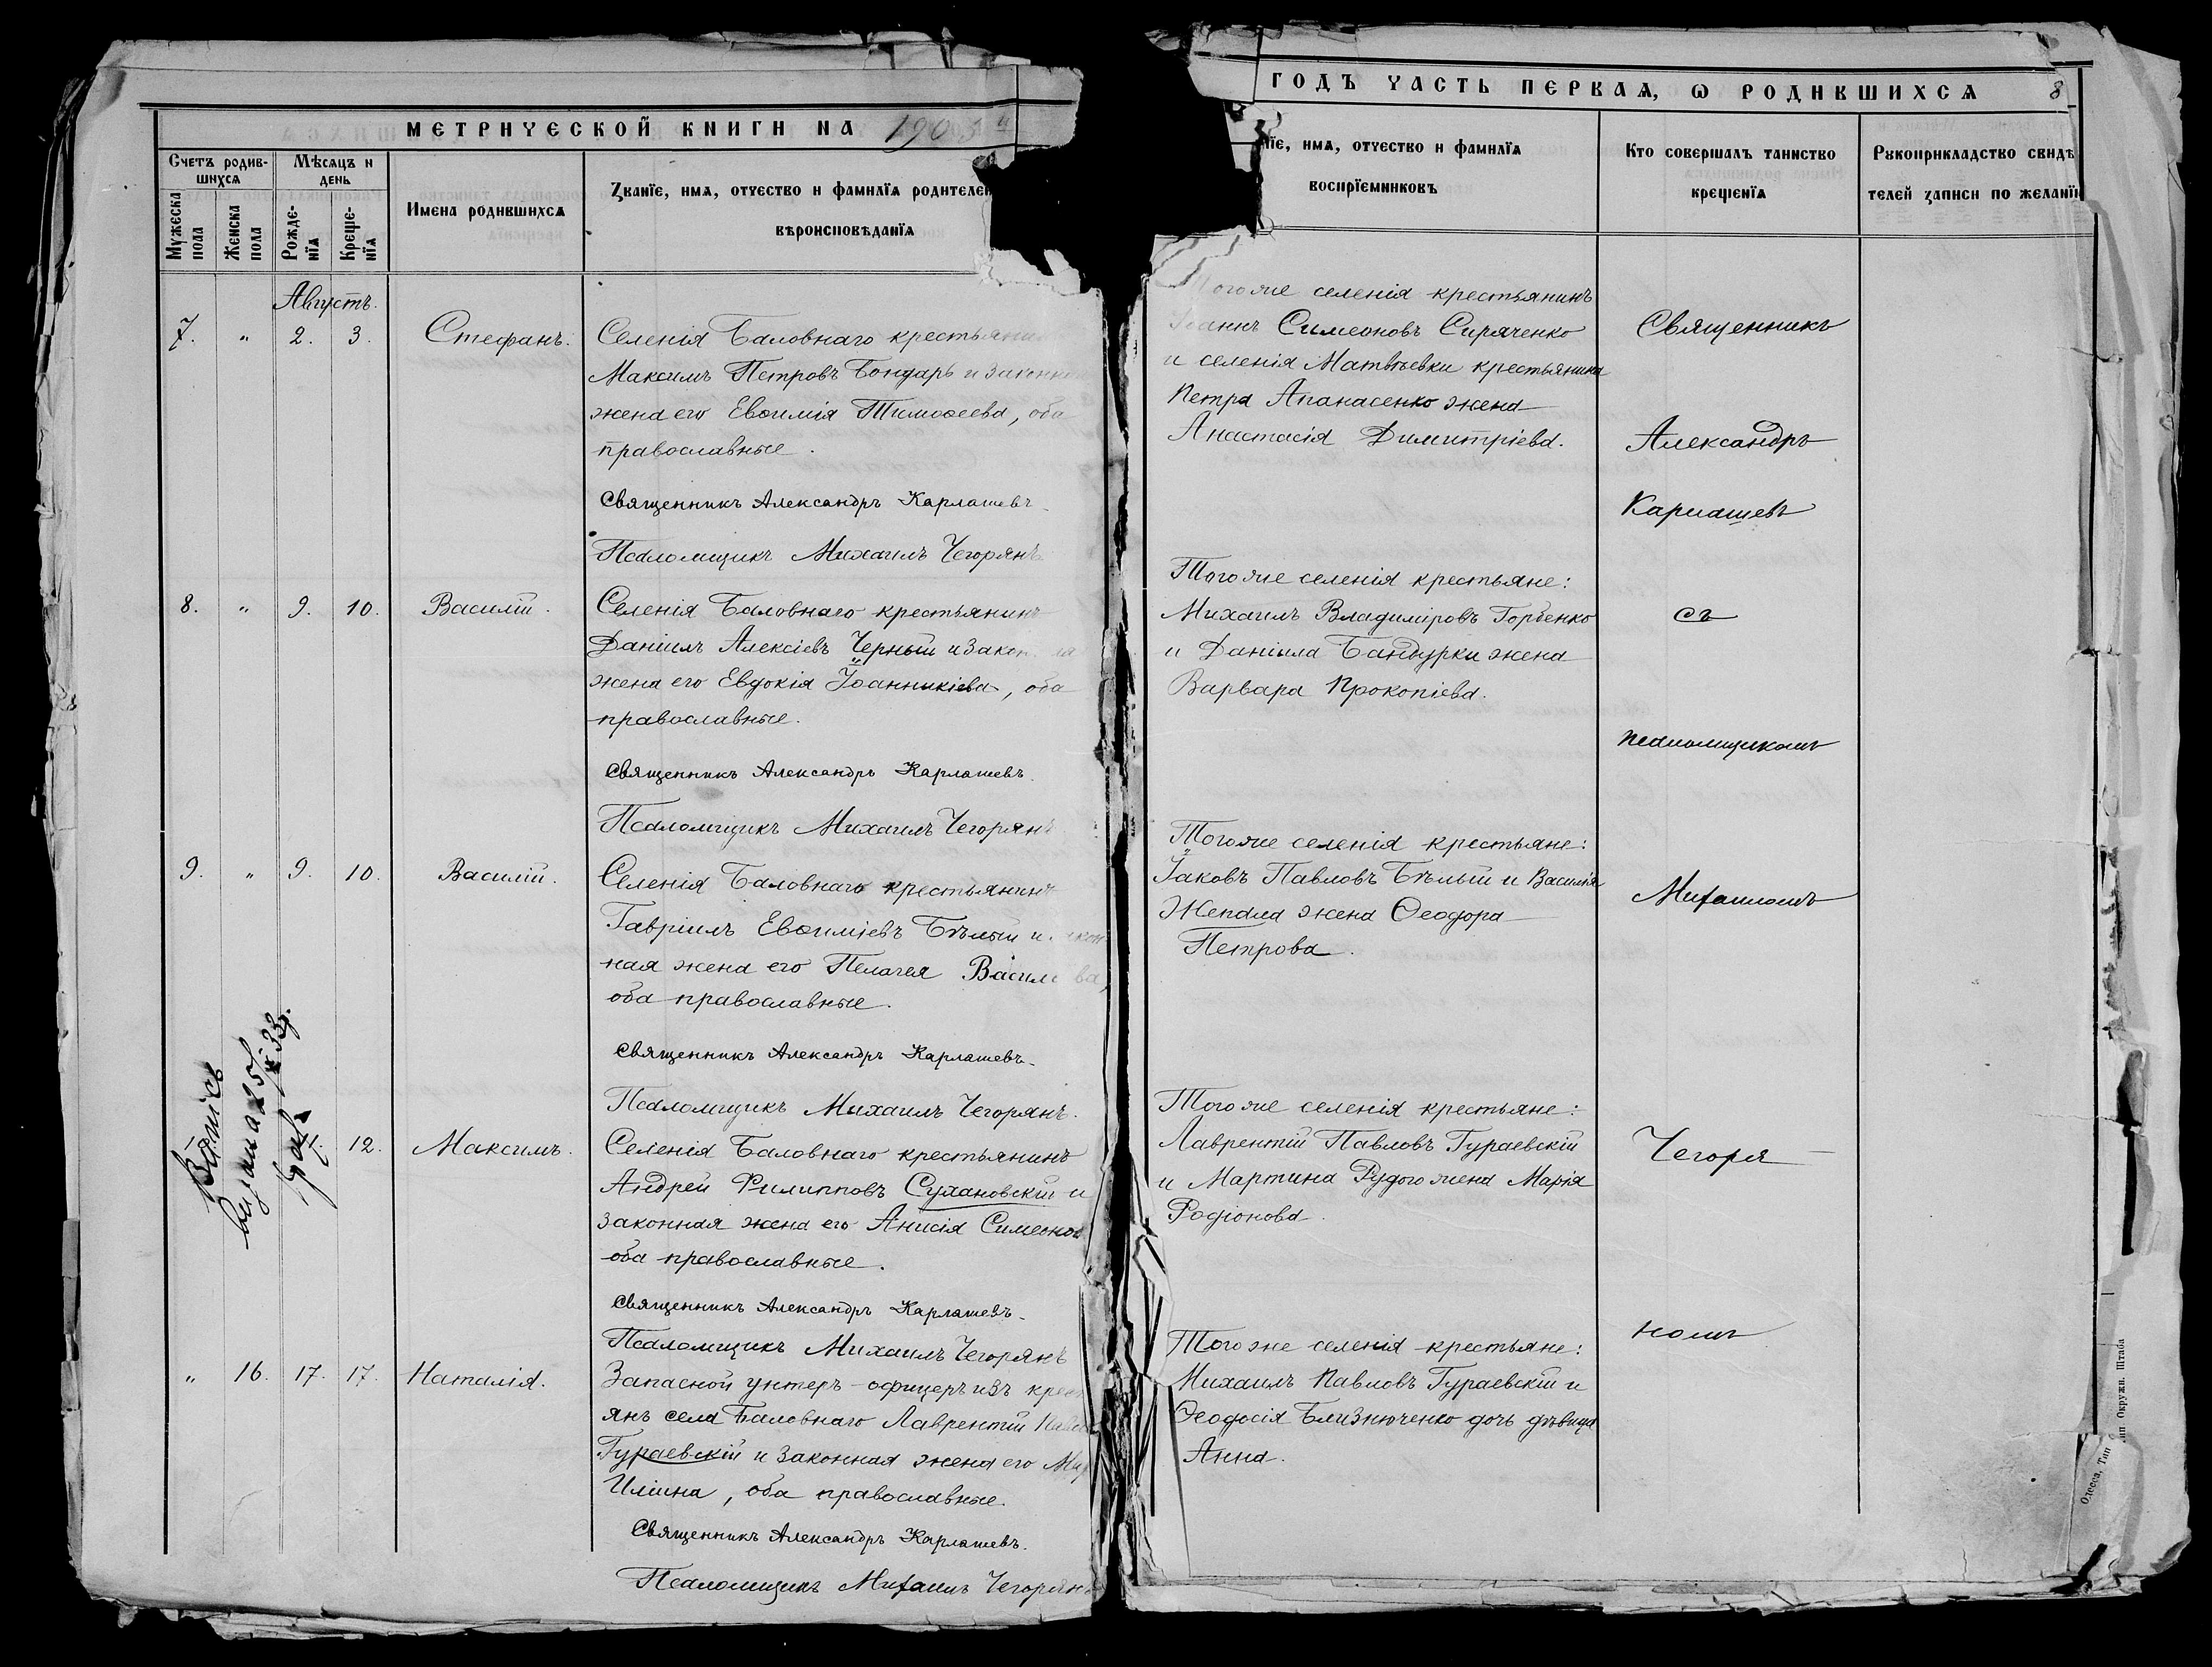 МЕТРИЧЕСКОЙ КНИГИ НА 1903 й
Счетъ родив-
шихся
Мужеска
пола
Женска
пола
Мѣсяцъ и
день
Рожде-
нїя
Креще-
нїя
Имена родившихся
Званїе, имя, отчество и фамилїя родителе
вѣроисповѣданїя
Августъ.
7. " 2. 3. Стефанъ.
Селенія Баловнаго крестьяни
Максимъ Петровъ Бондарь и законн
жена его Евѳимія Тимоѳеева, оба
православные.
Священникъ Александръ Карлашевъ.
Псаломщикъ Михаилъ Чегорянъ
8. " 9. 10. Василій.
Селенія Баловнаго крестьянинъ
Даніилъ Алексіевъ Черный и закон ая
жена его Евдокія Іоанникіева, оба
православные.
Священникъ Александръ Карлашевъ.
Псаломщикъ Михаилъ Чегорянъ
9. " 9. 10. Василій.
Селенія Баловнаго крестьянинъ
Гавріилъ Евѳиміевъ Бѣлый и кон
ная жена его Пелагея Васил ва,
оба православные.
Священникъ Александръ Карлашевъ.
Псаломщикъ Михаилъ Чегорянъ.
12. Максимъ.
Селенія Баловнаго крестьянинъ
Андрей Филипповъ Сухановскій и
законная жена его Анисія Симеонов
оба православные.
Священникъ Александръ Карлашевъ.
Псаломщикъ Михаилъ Чегорянъ
" 16. 17. 17. Наталія.
Запасной унтеръ-офицеръ изъ крест
янъ села Баловнаго Лаврентій Павло
Гураевскій и законная жена его Мар
Иліина, оба православные.
Священникъ Александръ Карлашевъ.
Псаломщикъ Михаилъ Чегорян
ГОДЪ ЧАСТЬ ПЕРВАЯ, Ѡ РОДИВШИХСЯ 8
нїе, имя, отчество и фамилїя
воспрїемниковъ
Кто совершалъ таинство
крещенїя
Рукоприкладство свидѣ
телей записи по желанїю
Тогоже селенія крестьянинъ
Іоаннъ Симеоновъ Сиряченко
и селенія Матвѣевки крестьянина
Петра Апанасенко жена
Анастасія Димитріева.
Тогоже селенія крестьяне:
Михаилъ Владиміровъ Горбенко
и Даніила Бандурки жена
Варвара Прокопіева.
Тогоже селенія крестьяне:
Іаковъ Павловъ Бѣлый и Василія
жена Ѳеодора
Петрова.
Тогоже селенія крестьяне:
Лаврентій Павловъ Гураевскій
и Мартина Рудого жена Марія
Родіонова.
Тогоже селенія крестьяне:
Михаилъ Павловъ Гураевскій и
Ѳеодосія Близнюченко дочь дѣвица
Анна.
Священникъ
Александръ
Карлашевъ
съ
псаломщикомъ
Михаиломъ
Чегоря
номъ
Одесса, Тип Окружн. Штаба